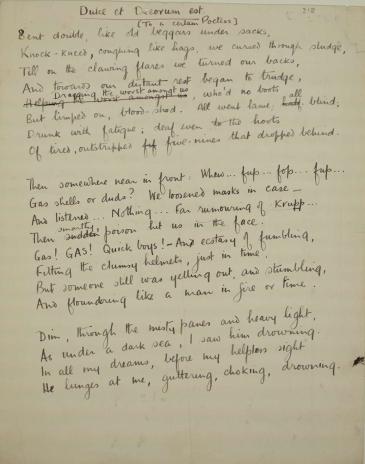 Dulce et Decorum est.
[To a certain Poetess]
Bent double, like old beggars under sacks,
Knock-kneed, coughing like hags, we cursed through sludge,
Till on the clawing flares we turned our backs,
And towards our distant rest began to trudge,
Dragging the worst amongst us, who'd no boots
Helping worst amongst us
But limped on, blood-shod. All went lame; all half blind;
Drunk with fatigue; deaf even to the hoots
Of tired, outstripped five-nines that dropped behind.
Then somewhere near in front: Whew... fup... fop... fup...
Gas shells or duds? We loosened masks in case —
And listened... Nothing... Far rumouring of Krupp...
Then smartly sudden poison hit us in the face.
Gas! GAS! Quick, boys! — An ecstasy of fumbling,
Fitting the clumsy helmets, just in time.
But someone still was yelling out, and stumbling,
And floundering like a man in fire or lime.
Dim, through the misty panes and heavy light,
As under a dark sea, I saw him drowning.
In all my dreams, before my helpless sight
He lunges at me, guttering, choking, drowning.